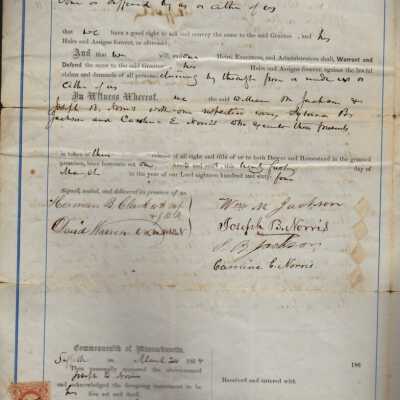 done or suffered by us or either of us
that we have a good right to sell and convey the same to the said Grantee and his
Heirs and Assigns forever, as aforesaid;
And that we will and our Heirs, Executors, and Administrators shall, Warrant and
Defend the same to the said Grantee his Heirs and Assigns forever, against the lawful
claims and demands of all persons claiming by through from or under us or
either of us
In Witness Whereof, we the said William M. Jackson &
Joseph B. Norris with our respective wives,
Jackson and Caroline E. Norris who execute these presents
in token of their release of all right and title of or to both Dower and Homestead in the granted
premises, have hereunto set our and seal this day of
March in the year of our Lord eighteen hundred and sixty four
Signed, sealed, and delivered in presence of us
Herman B. Clark
David Warren
Wm M. Jackson
Joseph B. Norris
S. B. Jackson
Caroline E. Norris
Commonwealth of Massachusetts.
Suffolk ss March 186
Then personally appeared the abovenamed
Joseph B. Norris
and acknowledged the foregoing instrument to be
his free act and deed
186
Received and entered with